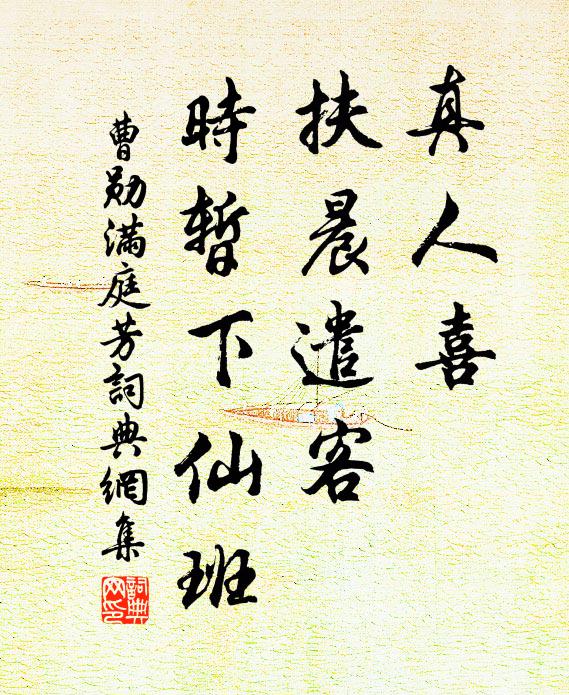 真人喜
扶晨遣客
時暫下仙班
曹勛滿庭芳詞典網集
詞典网印